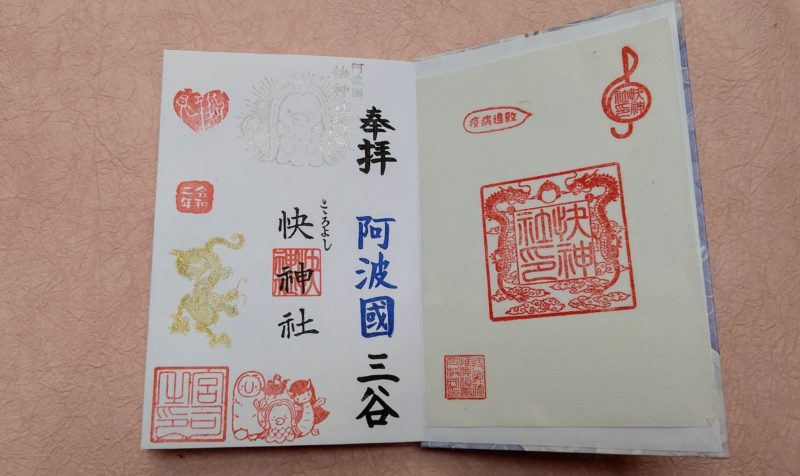 疫病退散
快神
社印
快神
社印
奉拝 阿波國 三谷
こころよし
快神社
阿波國
快神社
令和
二年
宮司
之印